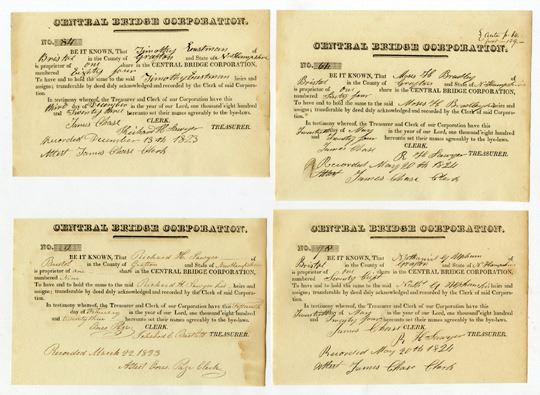 CENTRAL BRIDGE CORPORATION.
NO. 84
BE IT KNOWN, That Timothy Eastman of
Bristol in the County of Grafton and State of N Hampshire
is proprietor of one share in the CENTRAL BRIDGE CORPORATION,
numbered Eighty four
To have and to hold the same to the said Timothy Eastman heirs and
assigns; transferable by deed duly acknowledged and recorded by the Clerk of said Corporation.
In testimony whereof, the Treasurer and Clerk of Corporation have this
third day of December in the year of our Lord, one thousand eight hundred
and Twenty three hereunto set their names agreeably to the bye-laws.
James Chase CLERK.
Richard H. Sawyer TREASURER.
Recorded December 13th 1823
Attest James Chase Clerk
CENTRAL BRIDGE CORPORATION.
NO. 64
BE IT KNOWN, That Moses H Bradley of
Bristol in the County of Grafton and State of N Hampshire
is proprietor of one share in the CENTRAL BRIDGE CORPORATION,
numbered Sixty four
To have and to hold the same to the said Moses H Bradley heirs and
assigns; transferable by deed duly acknowledged and recorded by the Clerk of said Corporation.
In testimony whereof, the Treasurer and Clerk of Corporation have this
Twenty day of May in the year of our Lord, one thousand eight hundred
and Twenty four hereunto set their names agreeably to the bye-laws.
James Chase CLERK.
R H Sawyer TREASURER.
Recorded May 20th 1824
Attest James Chase Clerk
CENTRAL BRIDGE CORPORATION.
NO. 9
BE IT KNOWN, That Richard H. Sawyer of
Bristol in the County of Grafton and State of New Hampshire
is proprietor of one share in the CENTRAL BRIDGE CORPORATION,
numbered Nine
To have and to hold the same to the said Richard H. Sawyer his heirs and
assigns; transferable by deed duly acknowledged and recorded by the Clerk of said Corporation.
In testimony whereof, the Treasurer and Clerk of Corporation have this
day of February in the year of our Lord, one thousand eight hundred
and twenty three hereunto set their names agreeably to the bye-laws.
CLERK.
Ichabod C. Bartlett TREASURER.
Recorded March 22 1823
Attest Clerk
CENTRAL BRIDGE CORPORATION.
NO. 78
BE IT KNOWN, That Nathaniel G Upham of
Bristol in the County of Grafton and State of N Hampshire
is proprietor of one share in the CENTRAL BRIDGE CORPORATION,
numbered Seventy Eight
To have and to hold the same to the said Nath G Upham his heirs and
assigns; transferable by deed duly acknowledged and recorded by the Clerk of said Corporation.
In testimony whereof, the Treasurer and Clerk of Corporation have this
Twenty day of May in the year of our Lord, one thousand eight hundred
and Twenty four hereunto set their names agreeably to the bye-laws.
James Chase CLERK.
R H Sawyer TREASURER.
Recorded May 20th 1824
Attest James Chase Clerk